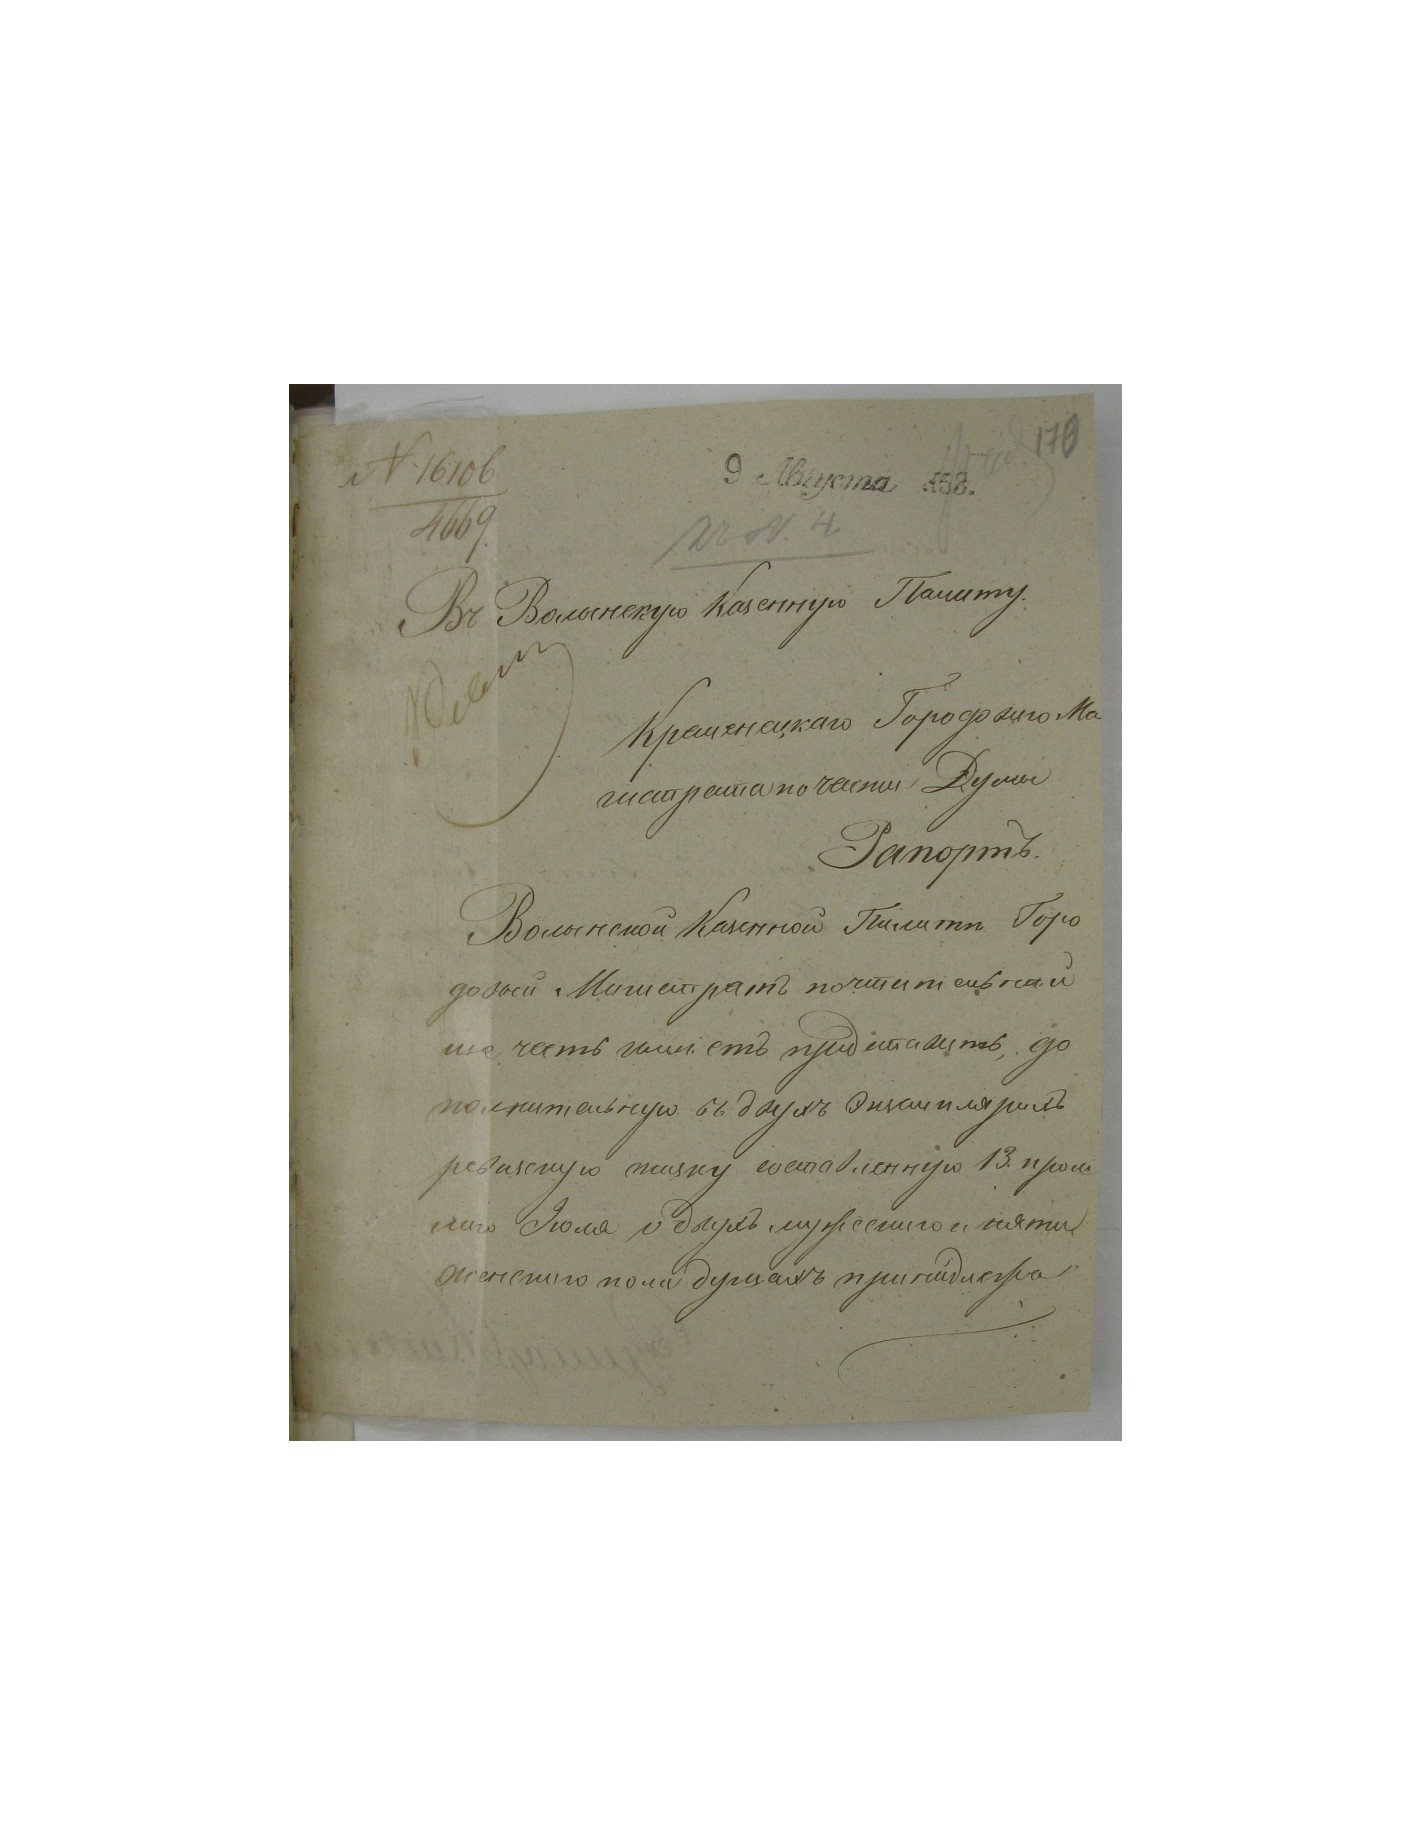 170
N. 16106
4669.
9 Августа 858.
къ N. 4.
Въ Волынскую Казенную Палату.
Кременецкаго Городоваго Ма
гистрата по части Думы
Рапортъ.
Волынской Казенной Палатѣ Горо
довый Магистратъ почтительнѣй
ше честь имѣетъ представить, до
полнительную въ двухъ экземплярахъ
ревизскую сказку составленную 13. прош
лаго Іюля о двухъ мужескаго и пяти
женскаго пола душахъ принадлежа